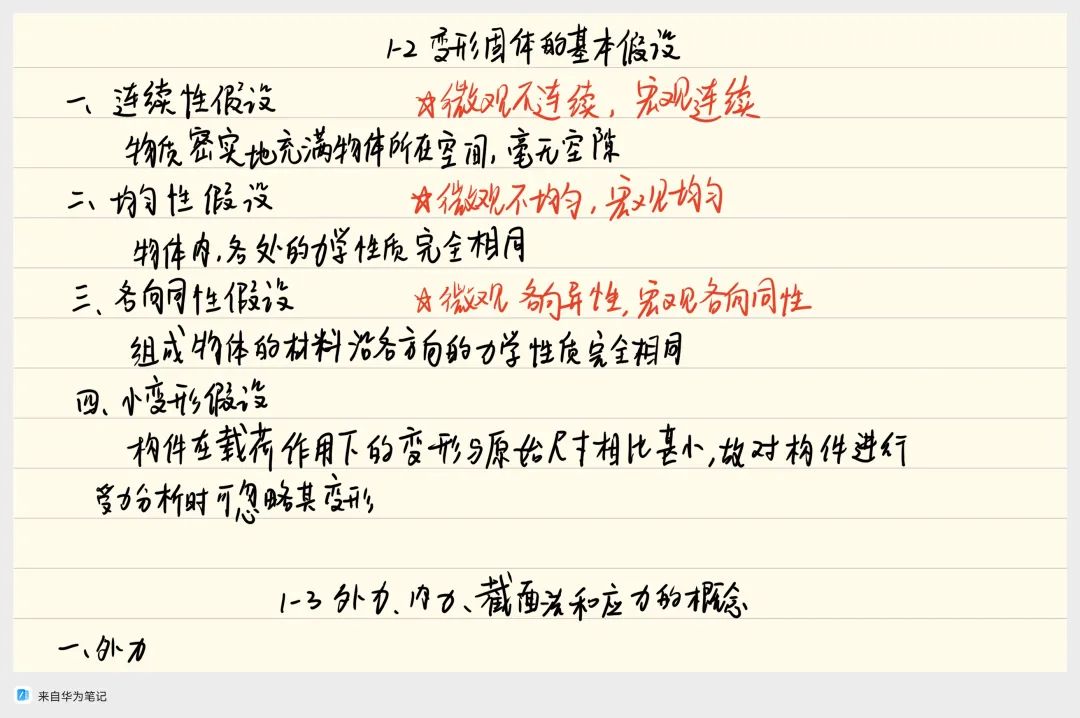 1-2 变形固体的基本假设
一、连续性假设 ☆微观不连续，宏观连续
物质密实地充满物体所在空间，毫无空隙
二、均匀性假设 ☆微观不均匀，宏观均匀
物体内，各处的力学性质完全相同
三、各向同性假设 ☆微观各向异性，宏观各向同性
组成物体的材料沿各方向的力学性质完全相同
四、小变形假设
构件在载荷作用下的变形与原始尺寸相比甚小，故对构件进行
受力分析时可忽略其变形
1-3 外力、内力、截面法和应力的概念
一、外力
来自华为笔记